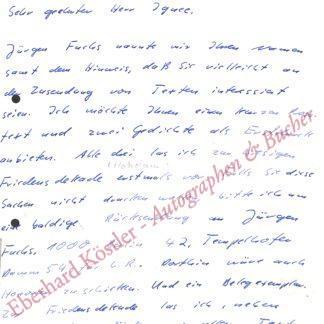 Sehr geehrter Herr
Jürgen Fuchs nannte mir Ihren Namen
samt dem Hinweis, daß Sie vielleicht an
der Zusendung von Texten interessiert
seien. Ich möchte Ihnen einen kurzen
text und zwei Gedichte als
anbieten. Alle drei las ich zur
Friedensdekade erstmals vor. Falls Sie diese
Sachen nicht drucken bitte ich um
eine baldige Rücksendung an Jürgen
Fuchs, 1000 42, Tempelhofer
Damm 54 Dorthin wäre auch
Honorar zu schicken. Und ein Belegexemplar.
Friedensdekade las ich, neben
Eberhard Köstler - Autographen & Bücher